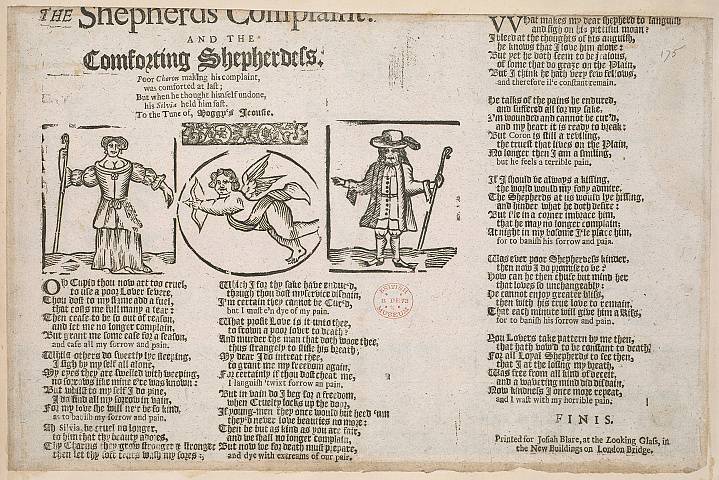 THE Shepherds Complaint:
AND THE
Comforting Shepherdess.
Poor Choron making his complaint,
was comforted at last;
But when he thought himself undone,
his Silvia held him fast.
To the Tune of, Moggy's Jealousie.
OH Cupid thou now art too cruel,
to use a poor Lover severe,
Thou dost to my flame add a fuel,
that costs me full many a tear:
Then cease to be so out of reason,
and let me no longer complain,
But grant me some ease for a season,
and ease all my sorrow and pain.
Whilst others do sweetly lye sleeping,
I sigh by my self all alone,
My eyes they are swelled with weeping,
no sorrows like mine e're was known:
But whilst to my self I do pine,
I do find all my sorrow in vain,
For my love she will ne'r be so kind,
as to banish my sorrow and pain.
Ah Silvia, be cruel no longer,
to him that thy beauty adores,
Thy Charms they grow stronger & stronger
then let thy soft tears wash my sores:
Which I for thy sake have endur'd,
though thou dost my service disdain,
I'm certain they cannot be Cur'd,
but I must e'n dye of my pain.
What profit Love is it unto thee,
to frown a poor lover to death?
And murder the man that doth wooe thee,
thus strangely to stifle his breath;
My dear I do intreat thee,
to grant me my freedom again,
For certainly if thou dost cheat me,
I languish 'twixt sorrow and pain.
But in vain do I beg for a freedom,
when Cruelty locks up the door,
If young-men they once would but heed 'um
they'd never love beauties no more:
Then be but as kind as you are fair,
and we shall no longer complain,
But now we for death must prepare,
and dye with extreams of our pain.
BRITISH
MUSEUM
175
WHat makes my dear shepherd to languish
and sigh on his pittiful moan?
I bleed at the thoughts of his anguish,
he knows that I love him alone:
But yet he doth seem to be jealous,
of some that do graze on the Plain,
But I think he hath very few fellows,
and therefore i'le constant remain.
He talks of the pains he endured,
and suffered all for my sake,
I'm wounded and cannot be cur'd,
and my heart it is ready to break:
But Coron is still a reviling,
the truest that lives on the Plain,
No longer then I am a smiling,
but he feels a terrible pain.
If I should be always a kissing,
the world would my folly admire,
The Shepherds at us would lye hissing,
and hinder what he doth desire:
But I'le in a corner imbrace him,
that he may no longer complain:
At night in my bosome I'le place him,
for to banish his sorrow and pain.
Was ever poor Shepherdess kinder,
then now I do promise to be?
How can he then chuse but mind her
that loves so unchangeably:
He cannot enjoy greater bliss,
then with his true love to remain,
That each minute will give him a Kiss,
for to banish his sorrow and pain.
You Lovers take pattern by me then,
that hath vow'd to be constant to death,
For all Loyal Shepherds to see then,
that I at the losing my breath,
Was free from all kind of deceit,
and a wavering mind did disdain,
Now kindness I once more repeat,
and I wast with my horrible pain.
FINIS.
Printed for Josah Blare, at the Looking Glass, in
the New Buildings on London Bridge.